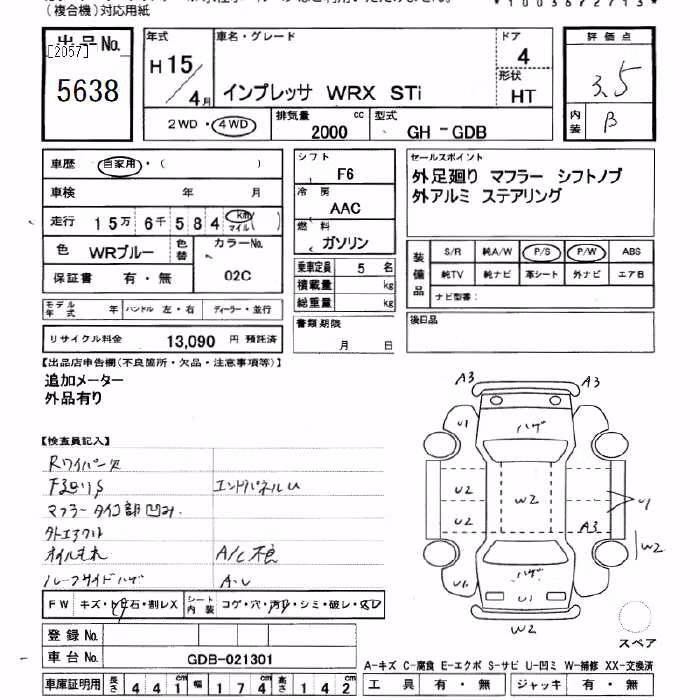 （複合機）対応用紙
出品No.
[2057]
5638
年式
H15/4月
車名・グレード
インプレッサ WRX STi
ドア
4
形状
HT
2WD・4WD
排気量
2000 cc
型式
GH - GDB
評価点
3.5
内装
B
車歴 自家用・( )
車検 年 月
走行 15万6千584 km マイル ( )
色 WRブルー
色替
カラーNo.
02C
保証書 有・無
シフト
F6
冷房
AAC
燃料
ガソリン
乗車定員 5 名
積載量 kg
総重量 kg
セールスポイント
外足廻り マフラー シフトノブ
外アルミ ステアリング
装備品
S/R 純A/W P/S P/W ABS
純TV 純ナビ 革シート 外ナビ エアB
ナビ型番：
モデル年式 年 ハンドル 左・右 ディーラー・並行
リサイクル料金 13,090 円 預託済
書類期限
月 日
後日品
【出品店申告欄（不良箇所・欠品・注意事項等）】
追加メーター
外品有り
【検査員記入】
Rワイパー欠
F廻りS
エンドパネルU
マフラータイコ部凹み.
外エアクル
オイルもれ
A/C不良
ルーフサイドハゲ
A-U
A3
A3
U1
ハゲ
U2
U2
W2
U1
A3
W2
U1
ハゲ
U1
U1
W2
スペア
FW キズ・ト石・割レX
シート内装 コゲ・穴・汚レ・シミ・破レ・スレ
登録No.
車台No. GDB-021301
車庫証明用 長さ 441cm 幅 174cm 高さ 142cm
A-キズ C-腐食 E-エクボ S-サビ U-凹ミ W-補修 XX-交換済
工具 有・無 ジャッキ 有・無